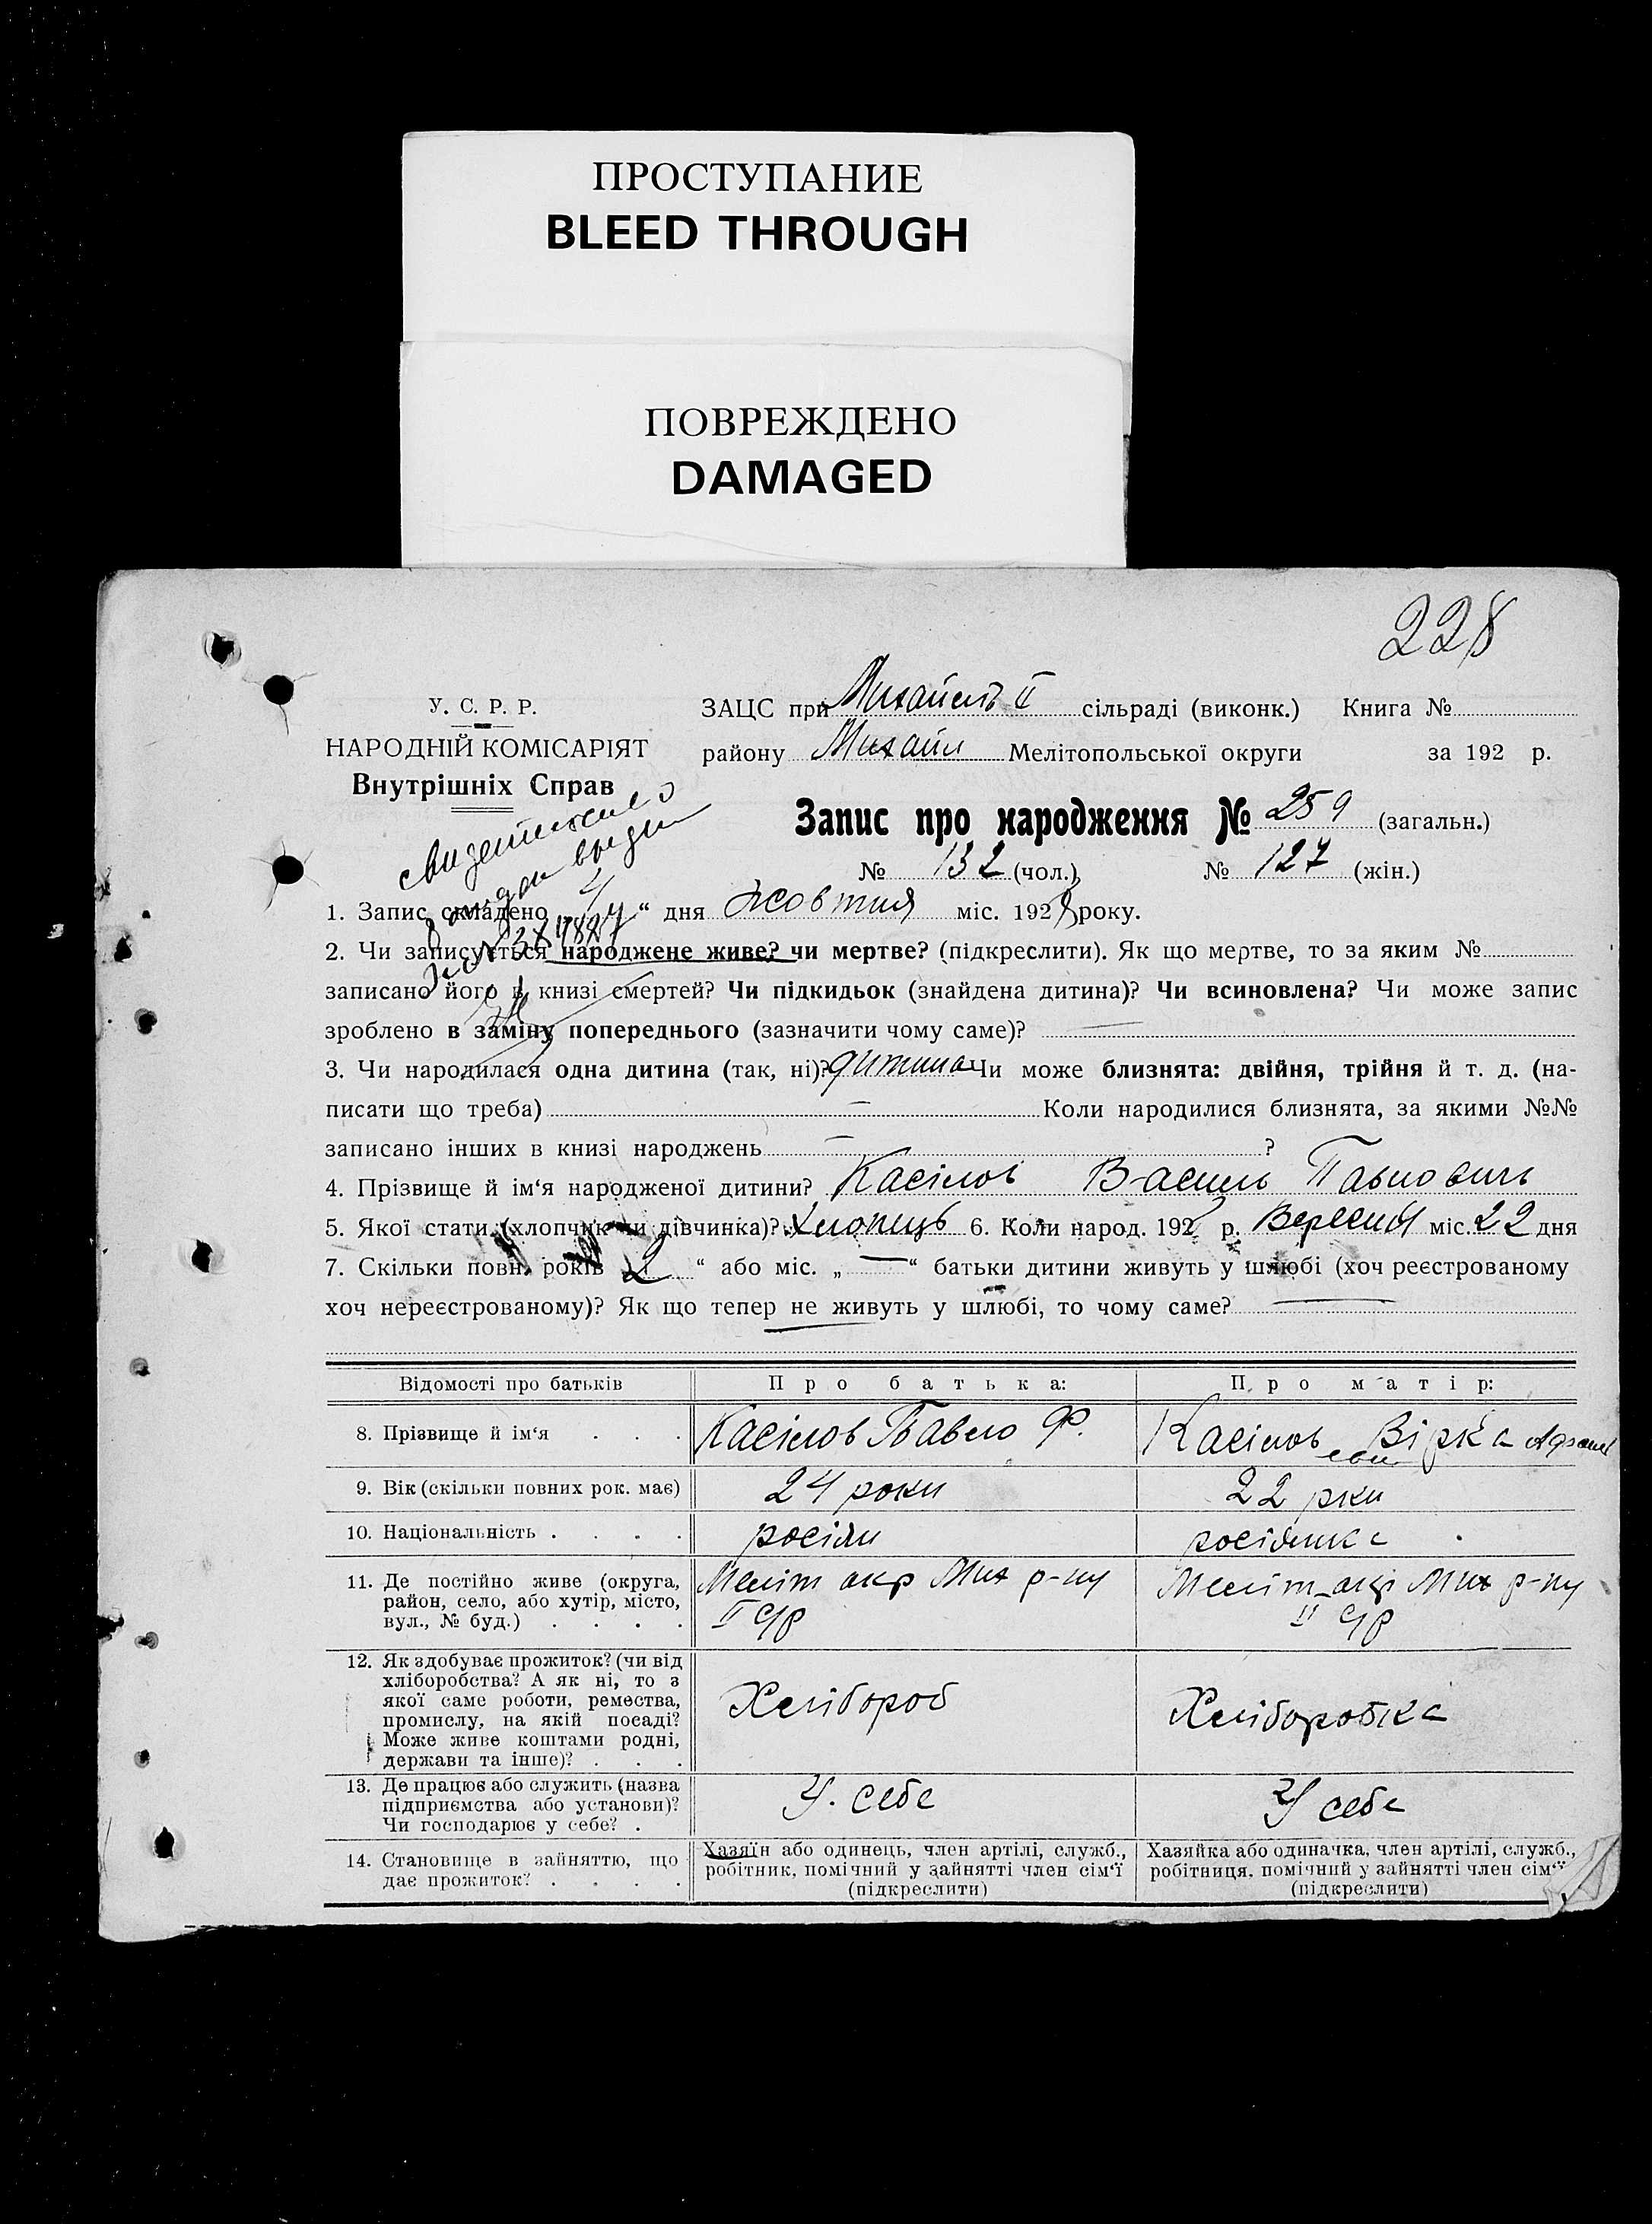 ПРОСТУПАНИЕ
BLEED THROUGH
ПОВРЕЖДЕНО
DAMAGED
228
У. С. Р. Р.
НАРОДНІЙ КОМІСАРІЯТ
Внутрішніх Справ
ЗАЦС при II сільраді (виконк.) Книга №
району Михайл Мелітопольської округи за 192 р.
Запис про народження № 259 (загальн.)
№ 132 (чол.) № 127 (жін.)
1. Запис складено 4 “ дня жовтня міс. 1928 року.
2. Чи записується народжене живе? чи мертве? (підкреслити). Як що мертве, то за яким №
записано його в книзі смертей? Чи підкидьок (знайдена дитина)? Чи всиновлена? Чи може запис
зроблено в заміну попереднього (зазначити чому саме)? —
3. Чи народилася одна дитина (так, ні)? дитина Чи може близнята: двійня, трійня й т. д. (на-
писати що треба) — Коли народилися близнята, за якими №№
записано інших в книзі народжень — ?
4. Прізвище й ім‘я народженої дитини? Касілов Василь Павлович
5. Якої стати (хлопчик чи дівчинка)? Хлопець 6. Коли народ. 192 р. Вересня міс. 22 дня
7. Скільки повн. років 2 “ або міс. „ — “ батьки дитини живуть у шлюбі (хоч реєстрованому
хоч нереєстрованому)? Як що тепер не живуть у шлюбі, то чому саме? —
Відомості про батьків Про батька: Про матір:
8. Прізвище й ім‘я . . . Касілов Павло Ф. Касілов Вірка
9. Вік (скільки повних рок. має) 24 роки 22 рки
10. Національність . . . . росіян росіянка
11. Де постійно живе (округа, район, село, або хутір, місто, вул., № буд.) . . . . Меліт окр Мих р-ну II с/р Меліт окр Мих р-ну II с/р
12. Як здобуває прожиток? (чи від хліборобства? А як ні, то з якої саме роботи, ремества, промислу, на якій посаді? Може живе коштами родні, держави та інше)? . . . Хлібороб Хліборобка
13. Де працює або служить (назва підприємства або установи)? Чи господарює у себе? . У себе У себе
14. Становище в зайняттю, що дає прожиток? . . . . Хазяїн або одинець, член артілі, служб., робітник, помічний у зайнятті член сім‘ї (підкреслити) Хазяйка або одиначка, член артілі, служб., робітниця, помічний у зайнятті член сім‘ї (підкреслити)